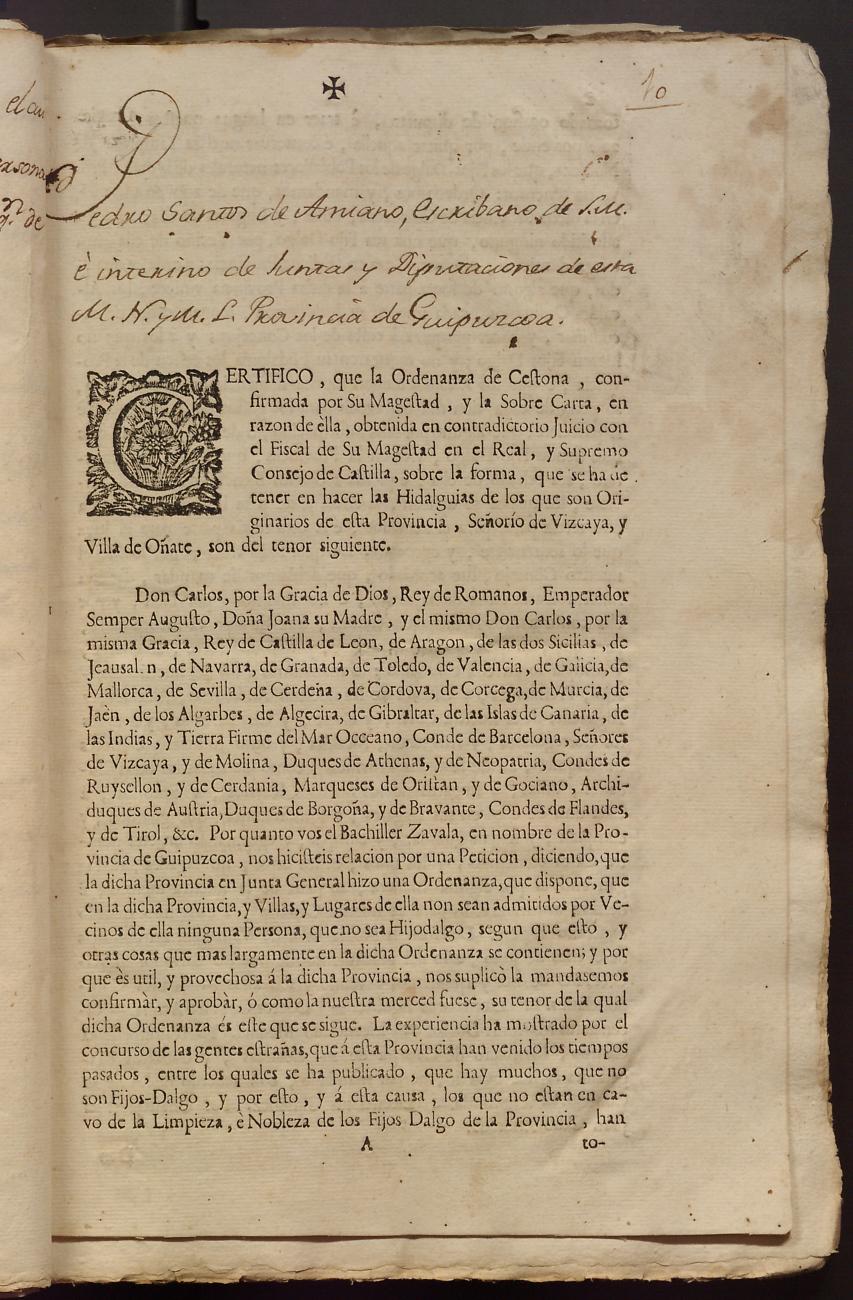 ✠
10
Pedro Santos de Amiano, Escribano de S.M.
è interino de Juntas y Diputaciones de esta
M. N. y M. L. Provincia de Guipuzcoa.
CERTIFICO , que la Ordenanza de Ceſtona , con-
firmada por Su Mageſtad , y la Sobre Carta, en
razon de èlla , obtenida en contradictorio Juicio con
el Fiscal de Su Mageſtad en el Real, y Supremo
Consejo de Caſtilla, sobre la forma, que se ha de
tener en hacer las Hidalguias de los que son Ori-
ginarios de eſta Provincia , Señorío de Vizcaya, y
Villa de Oñate, son del tenor siguiente.
Don Carlos, por la Gracia de Dios, Rey de Romanos, Emperador
Semper Auguſto, Doña Joana su Madre , y el mismo Don Carlos, por la
misma Gracia, Rey de Caſtilla de Leon, de Aragon, de las dos Sicilias , de
Jeausal.n, de Navarra, de Granada, de Toledo, de Valencia, de Galicia,de
Mallorca, de Sevilla, de Cerdeña, de Cordova, de Corcega,de Murcia, de
Jaèn, de los Algarbes, de Algecira, de Gibraltar, de las Islas de Canaria, de
las Indias, y Tierra Firme del Mar Occeano, Conde de Barcelona, Señores
de Vizcaya, y de Molina, Duques de Athenas, y de Neopatria, Condes de
Ruysellon, y de Cerdania, Marqueses de Oriſtan, y de Gociano, Archi-
duques de Auſtria,Duques de Borgoña, y de Bravante, Condes de Flandes,
y de Tirol, &c. Por quanto vos el Bachiller Zavala, en nombre de la Pro-
vincia de Guipuzcoa, nos hiciſteis relacion por una Peticion, diciendo,que
la dicha Provincia en Junta General hizo una Ordenanza,que dispone, que
en la dicha Provincia,y Villas,y Lugares de ella non sean admitidos por Ve-
cinos de ella ninguna Persona, que no sea Hijodalgo, segun que eſto , y
otras cosas que mas largamente en la dicha Ordenanza se contienen; y por
que ès util, y provechosa á la dicha Provincia , nos suplicò la mandasemos
confirmàr, y aprobàr, ó como la nueſtra merced fuese, su tenor de la qual
dicha Ordenanza és eſte que se sigue. La experiencia ha moſtrado por el
concurso de las gentes eſtrañas,que á eſta Provincia han venido los tiempos
pasados , entre los quales se ha publicado , que hay muchos, que no
son Fijos-Dalgo , y por eſto , y á eſta causa , los que no eſtan en ca-
vo de la Limpieza, è Nobleza de los Fijos Dalgo de la Provincia , han
A
to-